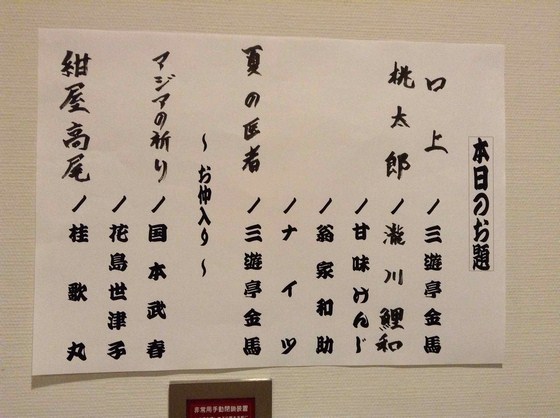 本日のお題
口上 / 三遊亭金馬
桃太郎 / 瀧川鯉和
/ 甘味けんじ
/ 翁家和助
/ ナイツ
夏の医者 / 三遊亭金馬
～お仲入り～
アジアの祈り / 国本武春
/ 花島世津子
紺屋高尾 / 桂歌丸
非常用手動閉鎖装置